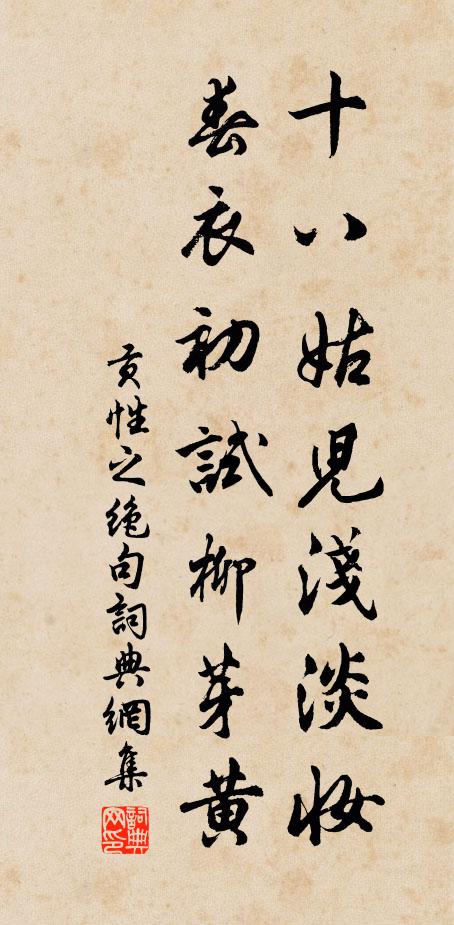 十八姑兒淺淡妝
春衣初試柳芽黃
貢性之絕句詞典網集
詞典網印